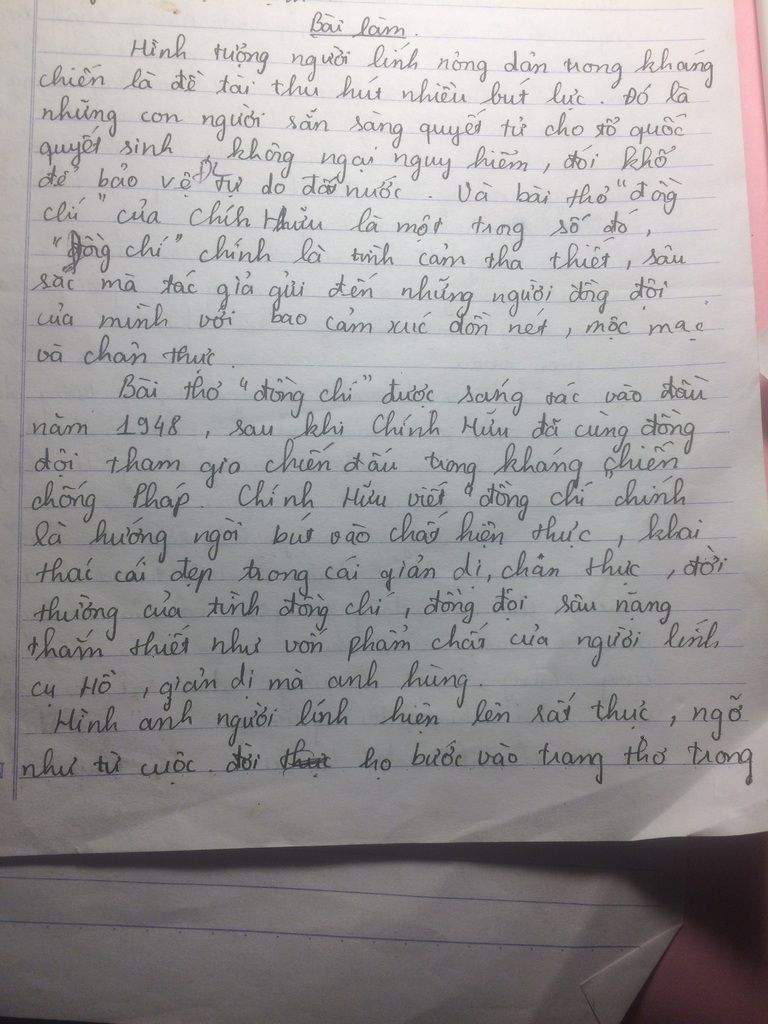 Bài làm.
Hình tượng người lính nông dân trong kháng
chiến là đề tài thu hút nhiều bút lực. Đó là
những con người sẵn sàng quyết tử cho tổ quốc
quyết sinh, không ngại nguy hiểm, đói khổ
để bảo vệ tự do đất nước. Và bài thơ "đồng
chí" của Chính Hữu là một trong số đó,
"Đồng chí" chính là tình cảm tha thiết, sâu
sắc mà tác giả gửi đến những người đồng đội
của mình với bao cảm xúc dồn nét, mộc mạc
và chân thực.
Bài thơ "đồng chí" được sáng tác vào đầu
năm 1948, sau khi Chính Hữu đã cùng đồng
đội tham gia chiến đấu trong kháng chiến
chống Pháp. Chính Hữu viết "đồng chí" chính
là hướng ngòi bút vào chất hiện thực, khai
thác cái đẹp trong cái giản dị, chân thực, đời
thường của tình đồng chí, đồng đội sâu nặng
thắm thiết như vốn phẩm chất của người lính
cụ Hồ, giản dị mà anh hùng.
Hình ảnh người lính hiện lên rất thực, ngỡ
như từ cuộc đời họ bước vào trang thơ trong